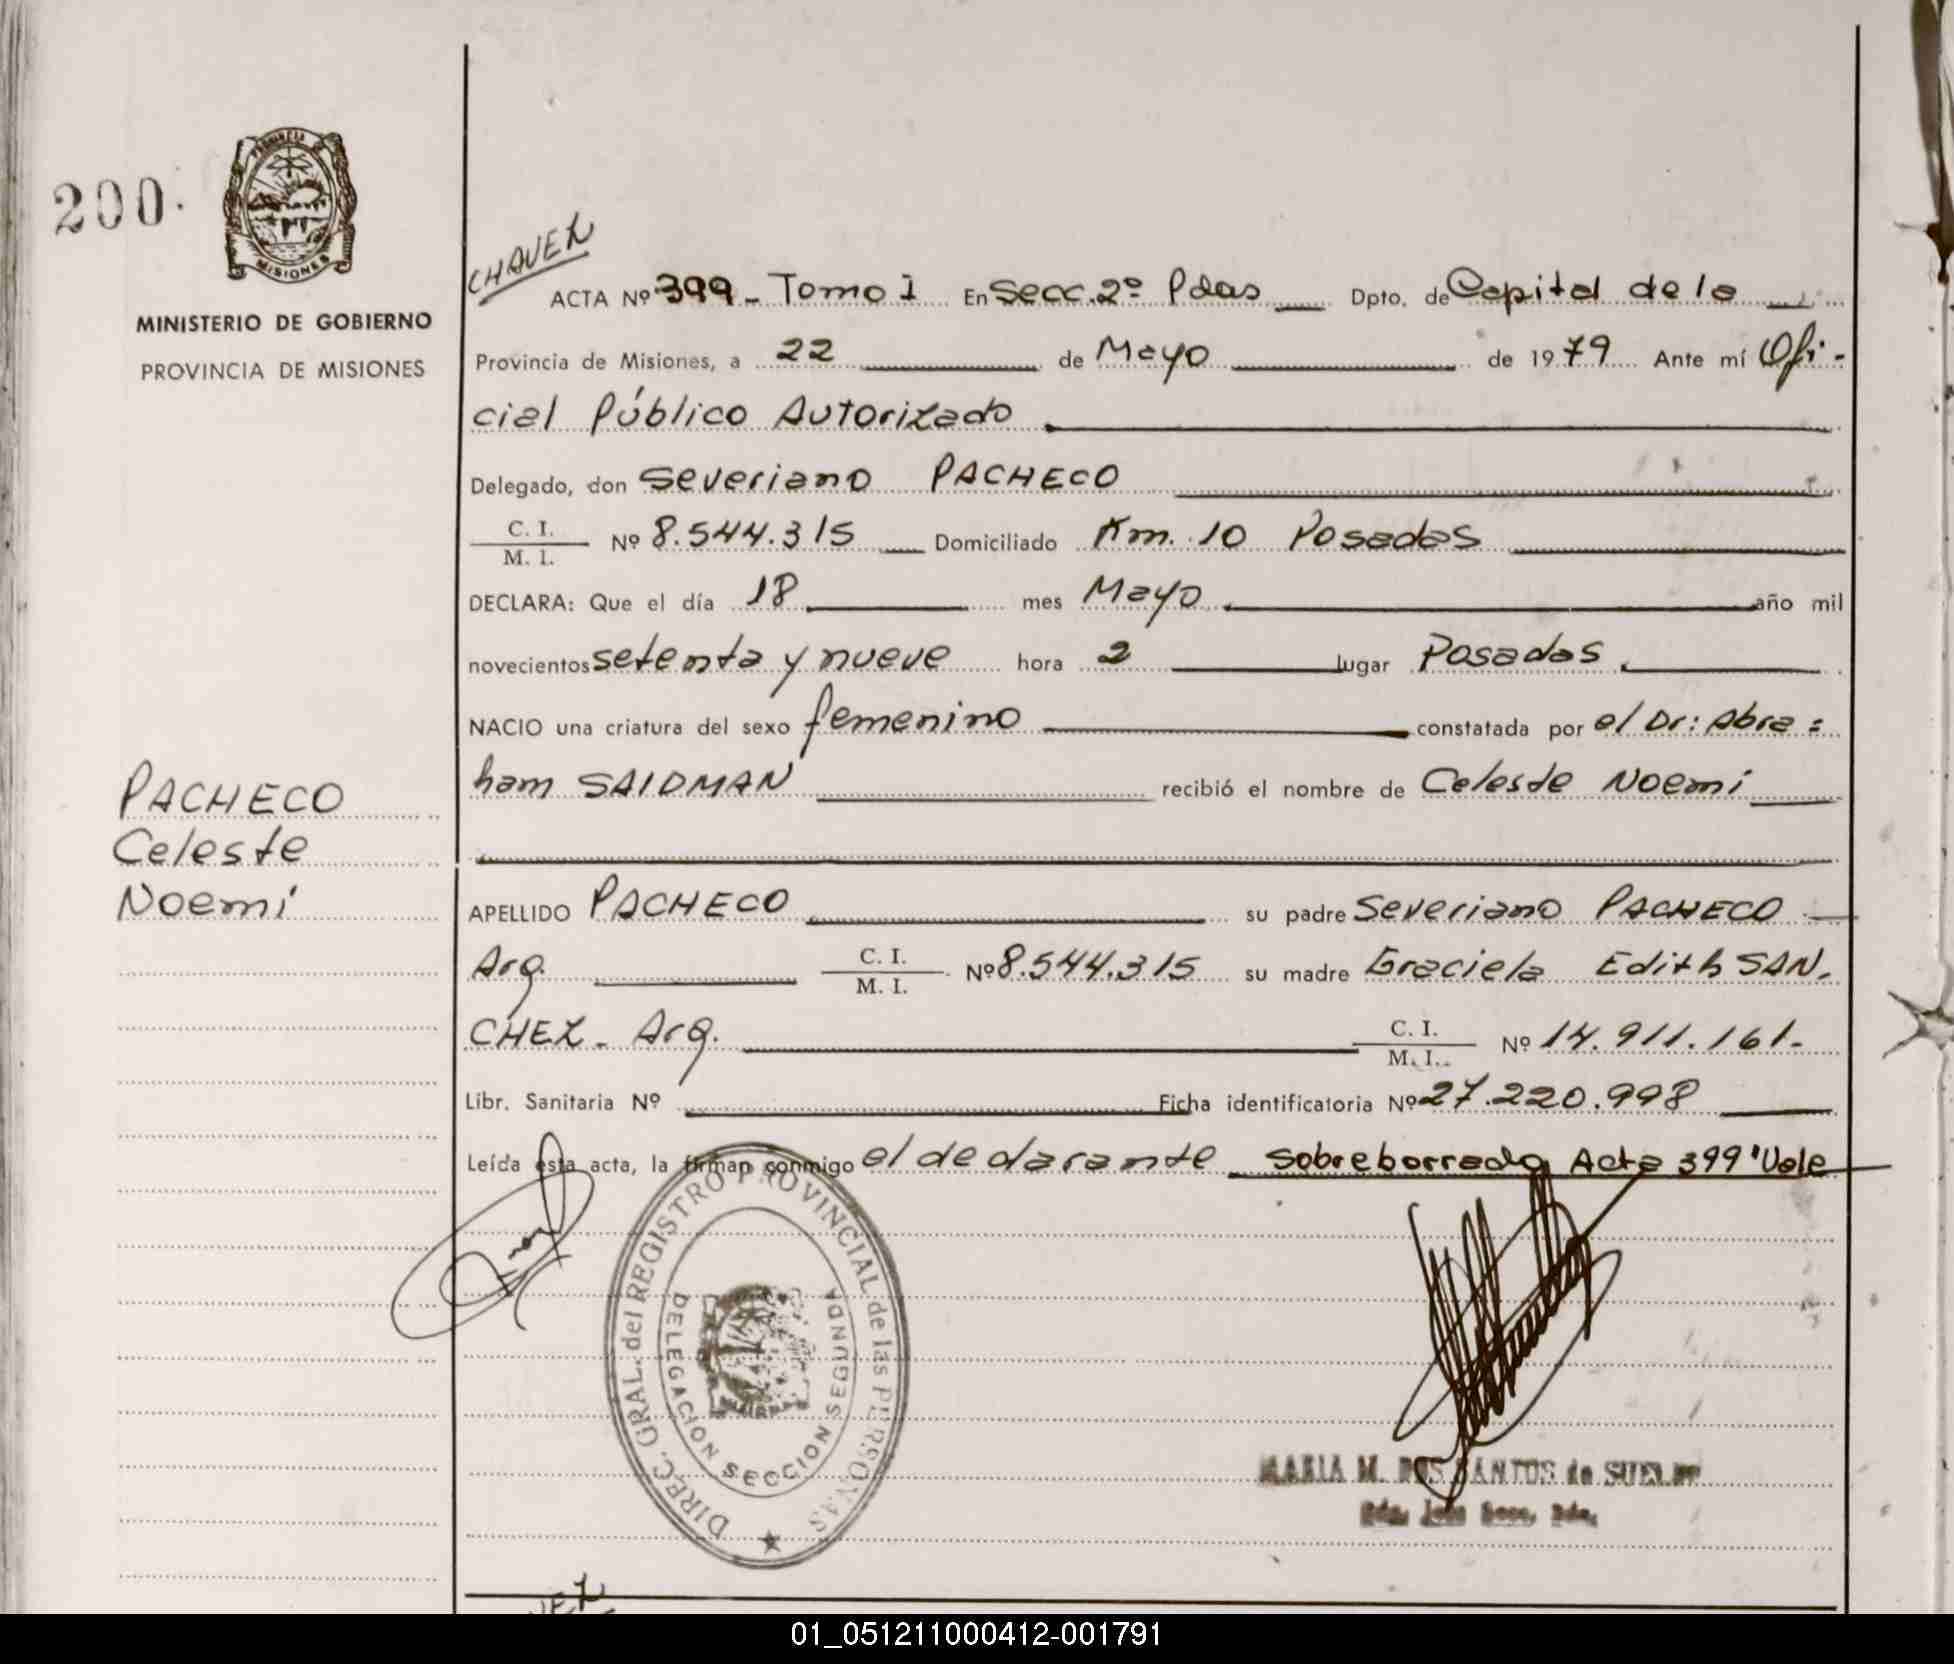 200.
PROVINCIA DE
MISIONES
MINISTERIO DE GOBIERNO
PROVINCIA DE MISIONES
PACHECO
Celeste
Noemí
CHAVEZ
ACTA Nº 399- Tomo I En Secc. 2º Pdas Dpto. de Capital de la
Provincia de Misiones, a 22 de Mayo de 1979 Ante mí Ofi-
cial Público Autorizado
Delegado, don Severiano PACHECO
C. I.
M. I. Nº 8.544.315 Domiciliado Km. 10 Posadas
DECLARA: Que el día 18 mes Mayo año mil
novecientos setenta y nueve hora 2 lugar Posadas
NACIO una criatura del sexo femenino constatada por el Dr: Abra=
ham SAIDMAN recibió el nombre de Celeste Noemí
APELLIDO PACHECO su padre Severiano PACHECO
Arg. C. I.
M. I. Nº 8.544.315 su madre Graciela Edith SAN-
CHEZ- Arg. C. I.
M. I. Nº 14.911.161.-
Libr. Sanitaria Nº Ficha identificatoria Nº 27.220.998
Leída esta acta, la firman conmigo el declarante sobreborrado Acta 399 "Vale
DIREC. GRAL. del REGISTRO PROVINCIAL de las PERSONAS
DELEGACION SECCION SEGUNDA
MARIA M. DOS SANTOS de
01_051211000412-001791